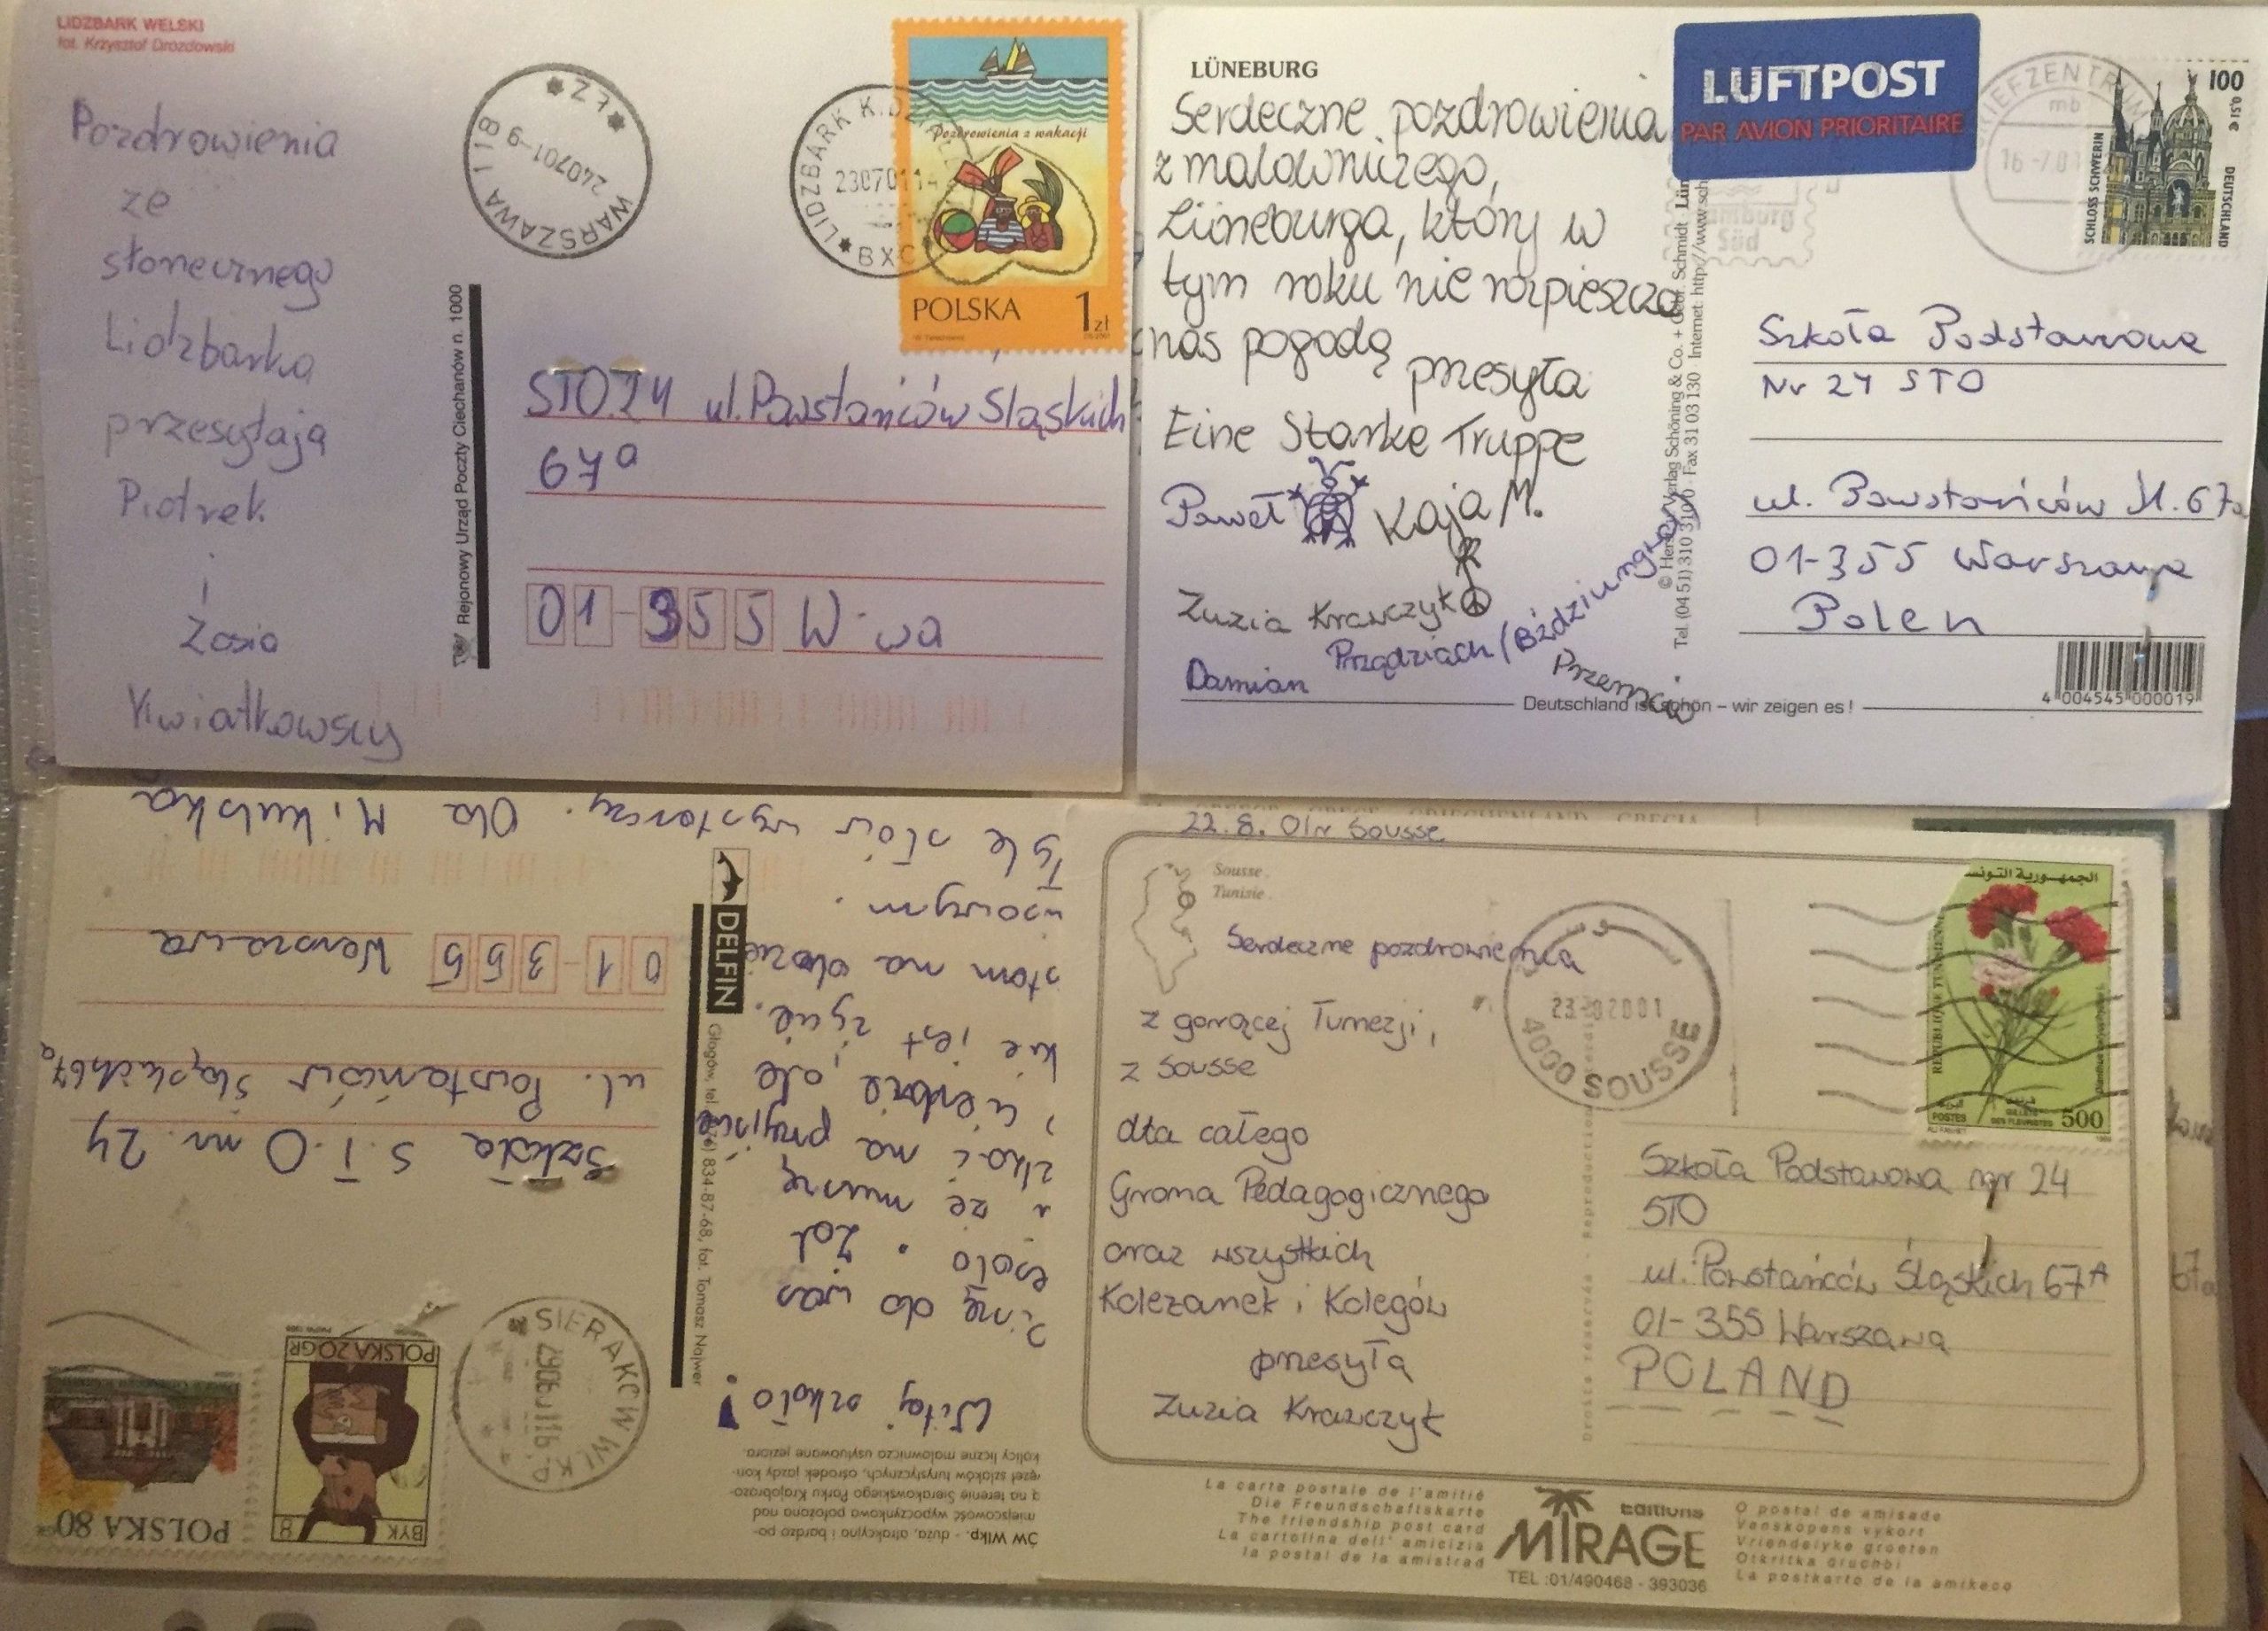 LIDZBARK WELSKI
fot. Krzysztof Drozdowski
Pozdrowienia
ze
słonecznego
Lidzbarka
przesyłają
Piotrek
i
Zosia
Kwiatkowscy
Rejonowy Urząd Poczty Ciechanów n. 1000
WARSZAWA 118
240701-9
*ŁZ*
LIDZBARK K.DZ
230701
BXC
Pozdrowienia z wakacji
POLSKA 1zł
STO.24 ul.Powstańców Sląskich
67a
01-355 W-wa
LÜNEBURG
Serdeczne pozdrowienia
z malowniczego,
Lüneburga, który w
tym roku nie rozpieszcza
nas pogodą
przesyła
Eine Starke Truppe
Paweł Kaja M.
Zuzia Krawczyk
Prządziach
Damian
Przemciu
Tel. (04 51) 310 310 Fax 31 03 130 Internet: http://www.sch
Deutschland ist schön – wir zeigen es!
LUFTPOST
PAR AVION PRIORITAIRE
BRIEFZENTRUM
mb
16-7.01
Hamburg
Süd
100
0,51 €
SCHLOSS SCHWERIN
DEUTSCHLAND
Szkoła Podstawowa
Nr 24 STO
ul. Powstańców Śl. 67a
01-355 Warszawa
Polen
4 004545 000019
Witaj szkoło!
do was
że muszę
na przyjście
ale
kie jest życie.
stam na obozie
Tyle słów wystarczy. Ola Mikulska
DELFIN
Głogów, tel. 834-87-68, fot. Tomasz Najwer
Szkoła S.T.O nr. 24
ul. Powstańców Śląskich 67a
01-355 Warszawa
SIERAKÓW WLKP.
POLSKA 20GR
BYK
POLSKA 80
ÓW Wlkp. - duża, atrakcyjna i bardzo po-
miejscowość wypoczynkowa położona nad
ą na terenie Sierakowskiego Parku Krajobrazo-
węzeł szlaków turystycznych, ośrodek jazdy kon-
kolicy liczne malowniczo usytuowane jeziora.
22.8.01r Sousse
Sousse.
Tunisie.
Serdeczne pozdrowienia
z gorącej Tunezji,
z Sousse
dla całego
Grona Pedagogicznego
oraz wszystkich
Koleżanek i Kolegów
przesyła
Zuzia Krawczyk
2001
4000 SOUSSE
REPUBLIQUE TUNISIENNE
POSTES
500
Droits réservés - Reproduction
Szkoła Podstawowa nr 24
STO
ul. Powstańców Śląskich 67A
01-355 Warszawa
POLAND
La carte postale de l'amitié
Die Freundschaftskarte
The friendship post card
La cartolina dell' amicizia
la postal de la amistrad
Editions
MIRAGE
TEL :01/490468 - 393036
O postal de amisade
Venskopens vykort
Vriendelyke groeten
Otkritka druchbi
La postkarto de la amikeco